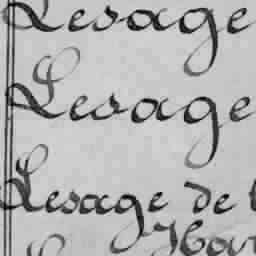 Lesage
Lesage
Lesage de l